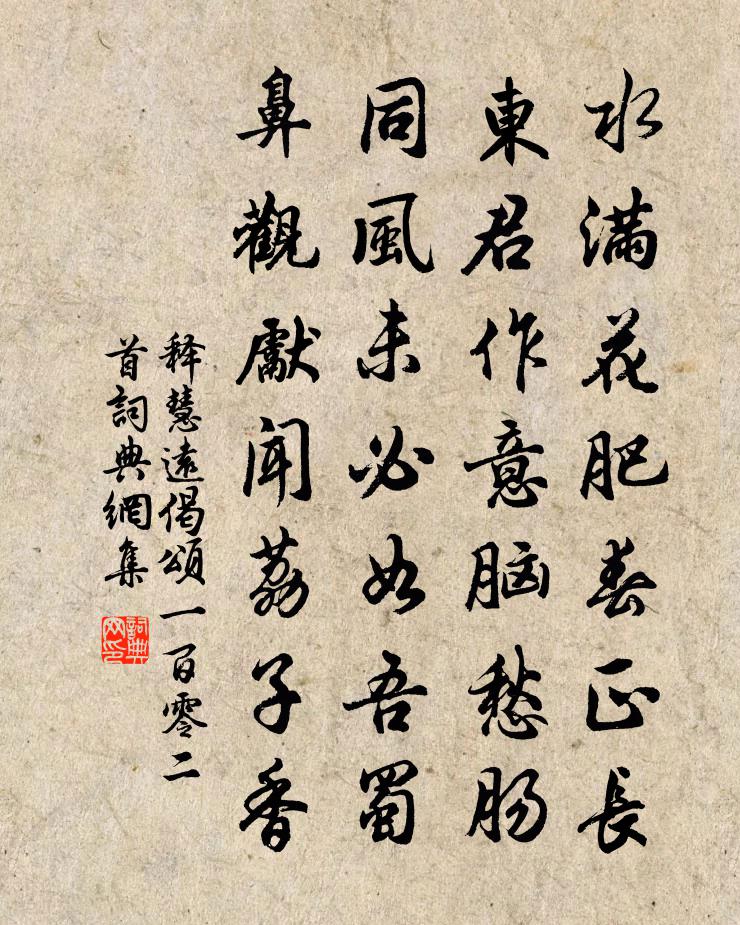 水满花肥春正長
東君作意脑愁肠
同風未必如吾蜀
鼻觀獻聞荔子香
释慧遠偈頌一百零二
首詞典網集
詞典
网印